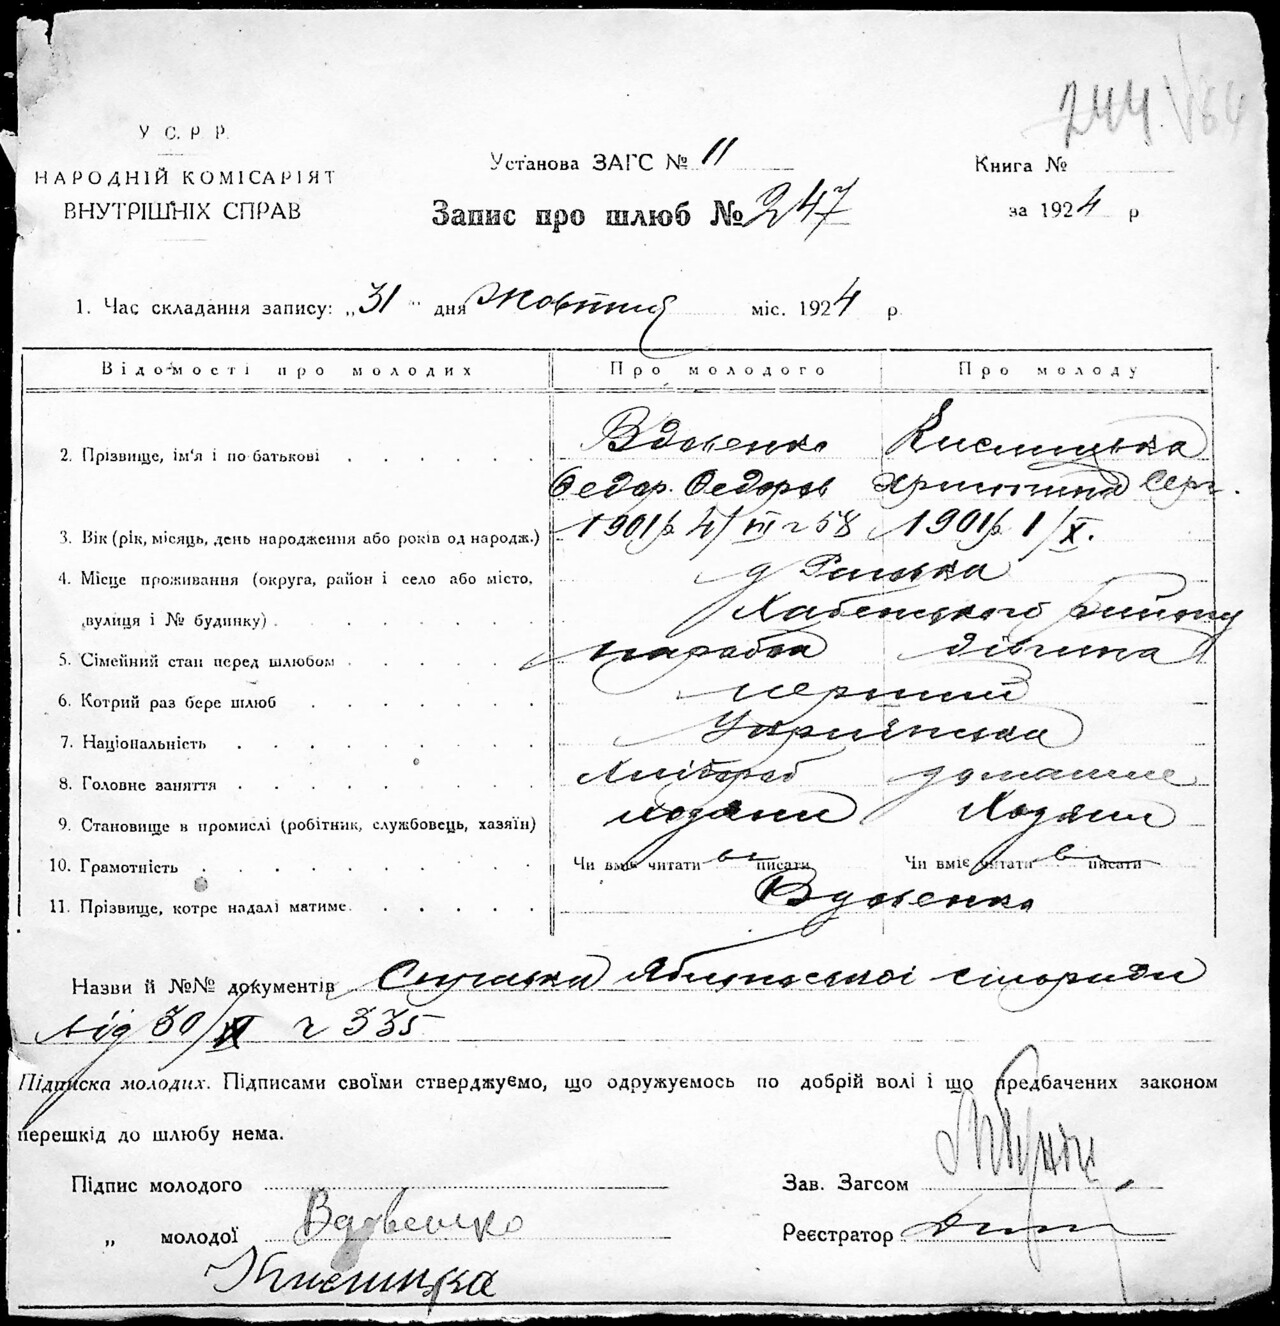 244 164
У С. Р Р.
НАРОДНІЙ КОМІСАРІЯТ
ВНУТРІШНІХ СПРАВ
Установа ЗАГС № 11
Книга №
Запис про шлюб № 247
за 1924 р
1. Час складання запису: „31" дня Жовтня міс. 1924 р
Відомості про молодих Про молодого Про молоду
2. Прізвище, ім'я і по батькові Вдовенко Кислицька
Федор. Федоров Христина Серг.
3. Вік (рік, місяць, день народження або років од народж.) 1901р 4/VI 1901р 1/X.
4. Місце проживання (округа, район і село або місто,
вулиця і № будинку) Хабенського району
5. Сімейний стан перед шлюбом парубок дівчина
6. Котрий раз бере шлюб перший
7. Національність Українська
8. Головне заняття Хлібороб домашнє
9. Становище в промислі (робітник, службовець, хазяїн)
10. Грамотність Чи вміє читати писати Чи вміє читати писати
11. Прізвище, котре надалі матиме Вдовенко
Назви й №№ документів Яблунської сільради
від 30/X ч 335
Підписка молодих. Підписами своїми стверджуємо, що одружуємось по добрій волі і що предбачених законом
перешкід до шлюбу нема.
Підпис молодого
Зав. Загсом
„ молодої Вдовенко
Реєстратор
Кислицка